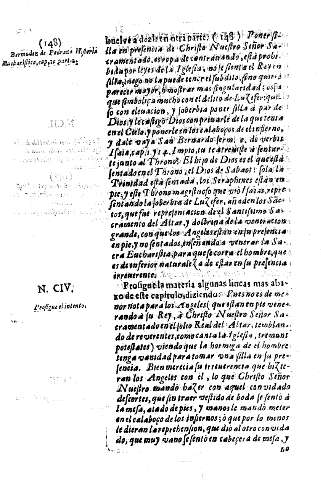 (148)
Bermudez de Pedraza Historia
Eucharistica, cap. 10. part. 2.
buelve à dezir en otra parte: (148) Ponerse
en presencia de Christo Nuestro Señor Sa-
cramentado, es
bida por leyes de la Iglesia, no se sienta el Rey en
silla,
parecer mayor, mostrar mas singularidad: cosa
que simboliza mucho con el delito de Luzifer: qui-
so con elevacion, y sobervia poner silla à par de
Dios, y le castigò Dios con privarle de la que tenia
en el Cielo, y ponerle en los calabozos del Infierno,
y dale vaya San Bernardo serm.
Isaia, cap.
te junto al Throno? El hijo de Dios es el que està
sentado en el Throno, el Dios de Sabaot: sola la
Trinidad està sentada, los Seraphines estàn en
pie; y este Throno magestuoso que viò Isaias, repre-
sentando la sobervia de Luzifer, añaden los San-
tos, que fue representacion de el Santissimo Sa-
cramento del Altar, y doctrina de la veneracion
grande, con que los Angeles estàn en su presencia
en pie, y no sentados, enseñando à venerar la Sa-
cra Eucharistia, para que se corra el hombre, que
es de inferior naturaleza de estar en su presencia
irreverente.
N. CIV.
Prosigue el intento.
Prosigue la materia algunas lineas mas aba-
xo de este capitulo, diziendo: Pues no es de me-
nor nota para los Angeles (que estàn en pie vene-
rando à su Rey, à Christo Nuestro Señor Sa-
cramentado en el solio Real del Altar, temblan-
do de reverentes, como canta la Iglesia, tremunt
potestates) viendo que la hormiga de el hombre
tenga vanidad para tomar una silla en su pre-
sencia. Bien merecia su irreverencia que hizie-
ran los Angeles con èl, lo que Christo Señor
Nuestro mandò hazer con aquel convidado
descortès, que sin traer vestido de boda se sentò à
la mesa, atado de pies, y manos le mandò meter
en el calabozo de los infiernos; ò que por lo menos
le dieran la reprehension, que diò al otro convida-
do, que muy vano se sentò en cabecera de mesa, y
lo